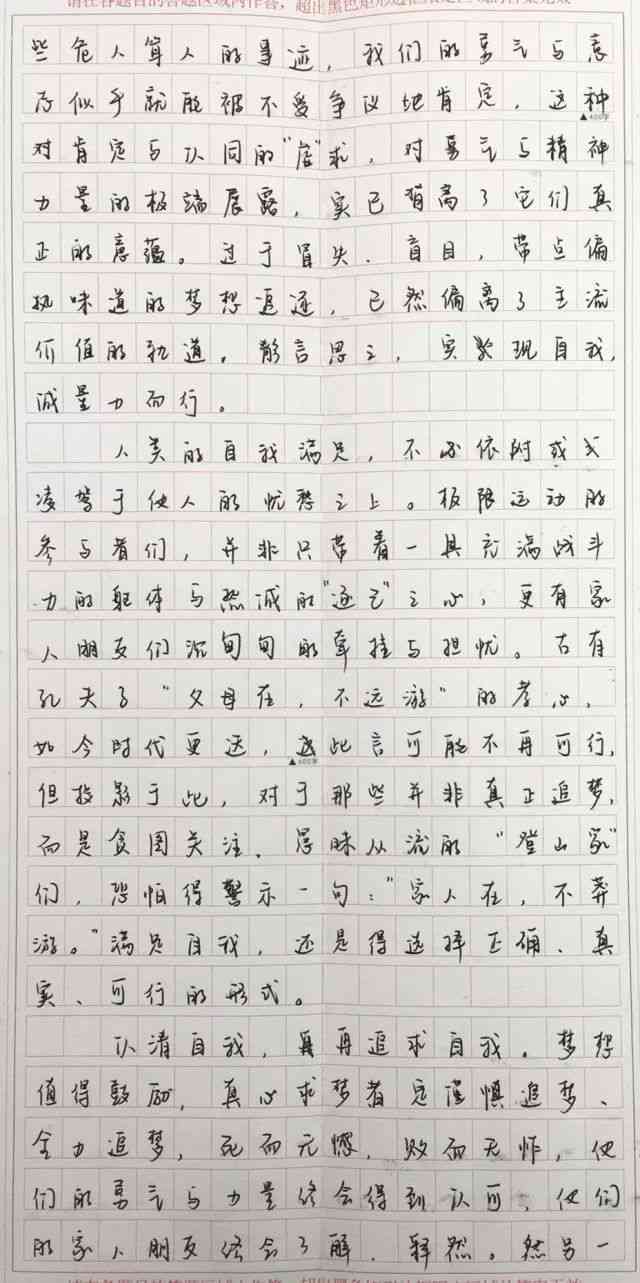 请在各题目的答题区域内作答，超出黑色矩形边框限定区域的答案无效
些危人耸人的事迹，我们的勇气与意
应似乎就能被不受争议地肯定，这种
▲400字
对肯定与认同的"虚"求，对勇气与精神
力量的极端展露，实已背离了它们真
正的意蕴。过于冒失、盲目，带点偏
执味道的梦想追逐，已然偏离了主流
价值的轨道。静言思之，实现自我，
诚量力而行。
人类的自我满足，不必依附或
凌驾于他人的忧愁之上。极限运动的
参与者们，并非只带着一具充满战斗
力的躯体与热诚的"逐己"之心，更有家
人朋友们沉甸甸的牵挂与担忧。古有
孔夫子"父母在，不远游"的孝心，
如今时代更迭，此言可能不再可行，
▲600字
但投影于此，对于那些并非真正追梦，
而是贪图关注、愚昧从流的"登山家"
们，恐怕得警示一句："家人在，不莽
游。"满足自我，还是得选择正确、真
实、可行的形式。
认清自我，再追求自我。梦想
值得鼓励，真心求梦者定谨慎追梦、
全力追梦，死而无憾，败而无怍，他
们的勇气与力量终会得到认可，他们
的家人朋友终会了解、释然。然另一